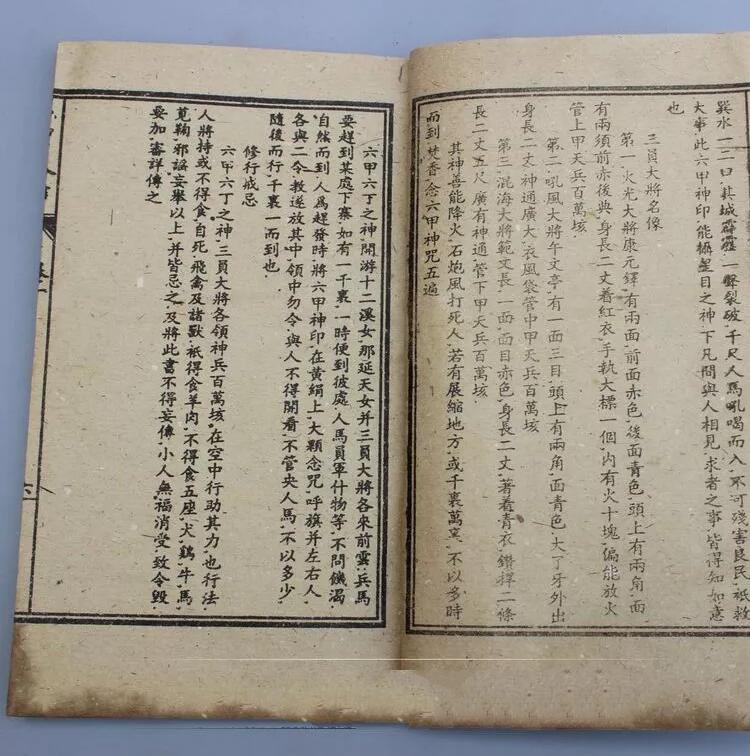 巽水一二口其城霹靂一聲裂破千尺人馬吼喝而入不可殘害良民祇救
大事此六甲神印能攝星日之神下凡間與人相見求者之事皆得知如意
也
三員大將名像
第一火光大將康元鐸有兩面前面赤色後面青色頭上有兩角面
有兩須前赤後典身長二丈着紅衣手執大標一個內有火十塊偏能放火
管上甲天兵百萬垓
第二吼風大將午文亭有一面三目頭上有兩角面青色大丁牙外出
身長二丈神通廣大衣風袋管中甲天兵百萬垓
第三混海大將範文長一面面目赤色身長二丈著着青衣鑽擇二條
長二丈五尺廣有神通管下甲天兵百萬垓
其神善能降火石炮風打死人若有展縮地方或千裏萬窯不以多時
而到焚香念六甲神咒五遍
六甲六丁之神開游十二溪女那延天女并三員大將各來前雲兵馬
要趕到某處下寨如有一千裏一時便到彼處人馬員軍什物等不問饑渴
自然而到人爲趕發時將六甲神印在黄絹上大顆念咒呼旗并左右人
各與二令教遂放其中領中勿令與人不得開看不管央人馬不以多少
隨後而行千裏一而到也
修行戒忌
六甲六丁之神三員大將各領神兵百萬垓在空中行助其力也行法
人將持或不得食自死飛禽及諸獸祇得食羊肉不得食五座犬鷄牛馬
莧鞠邪謡妄舉以上并皆忌之及將此書不得妄傳小人無福消受致令毀
要加審詳傳之